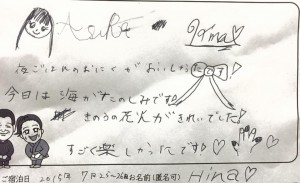 Rina♡
夜ごはんのおにくがおいしかったです!
今日は海がたのしみです♪
きのうの花火がきれいでした!
すごく楽しかったです!♡
ご宿泊日 2015年 7月25~26日 お名前(匿名可) Hina♡